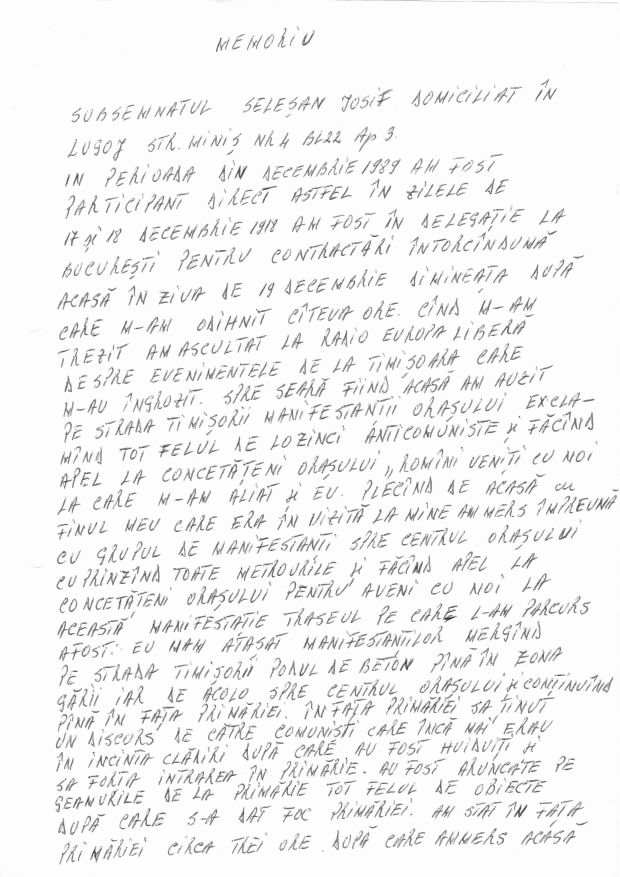 MEMORIU
SUBSEMNATUL SELEȘAN IOSIF DOMICILIAT ÎN
LUGOJ STR. MINIȘ NR 4 BL22 Ap 3.
IN PERIOADA DIN DECEMBRIE 1989 AM FOST
PARTICIPANT DIRECT ASTFEL ÎN ZILELE DE
17 și 18 DECEMBRIE 1918 AM FOST ÎN DELEGAȚIE LA
BUCUREȘTI PENTRU CONTRACTĂRI ÎNTORCÎNDUMĂ
ACASĂ ÎN ZIUA DE 19 DECEMBRIE DIMINEAȚA DUPĂ
CARE M-AM ODIHNIT CÎTEVA ORE. CÎND M-AM
TREZIT AM ASCULTAT LA RADIO EUROPA LIBERĂ
DESPRE EVENIMENTELE DE LA TIMIȘOARA CARE
M-AU ÎNGROZIT. SPRE SEARĂ FIIND ACASĂ AM AUZIT
PE STRADA TIMIȘORII MANIFESTANTII ORAȘULUI EXCLA-
MÎND TOT FELUL DE LOZINCI ANTICOMUNISTE și FĂCÎND
APEL LA CONCETĂȚENI ORAȘULUI „ROMÎNI VENIȚI CU NOI
LA CARE M-AM ALIAT și EU. PLECÎND DE ACASĂ cu
FINUL MEU CARE ERA ÎN VIZITĂ LA MINE AM MERS ÎMPREUNĂ
CU GRUPUL DE MANIFESTANTI SPRE CENTRUL ORAȘULUI
CUPRINZÎND TOATE METROURILE și FĂCÎND APEL LA
CONCETĂȚENI ORAȘULUI PENTRU AVENI CU NOI LA
ACEASTĂ MANIFESTATIE TRASEUL PE CARE L-AM PARCURS
AFOST: EU MAM ATASAT MANIFESTANTILOR MERGÎND
PE STRADA TIMIȘORII PODUL DE BETON PÎNĂ ÎN ZONA
GĂRII IAR DE ACOLO SPRE CENTRUL ORAȘULUI și CONTINUÎND
PÎNĂ ÎN FAȚA PRIMĂRIEI. ÎN FAȚA PRIMĂRIEI SA ȚINUT
UN DISCURS DE CĂTRE COMUNISTI CARE ÎNCĂ MAI ERAU
ÎN INCINTA CLĂDIRI DUPĂ CARE AU FOST HUIDUIȚI și
SA FORTA INTRAREA ÎN PRIMĂRIE. AU FOST ARUNCATE PE
GEAMURILE DE LA PRIMĂRIE TOT FELUL DE OBIECTE
DUPĂ CARE S-A DAT FOC PRIMĂRIEI. AM STAT ÎN FAȚA
PRIMĂRIEI CIRCA TREI ORE DUPĂ CARE AMMERS ACASĂ